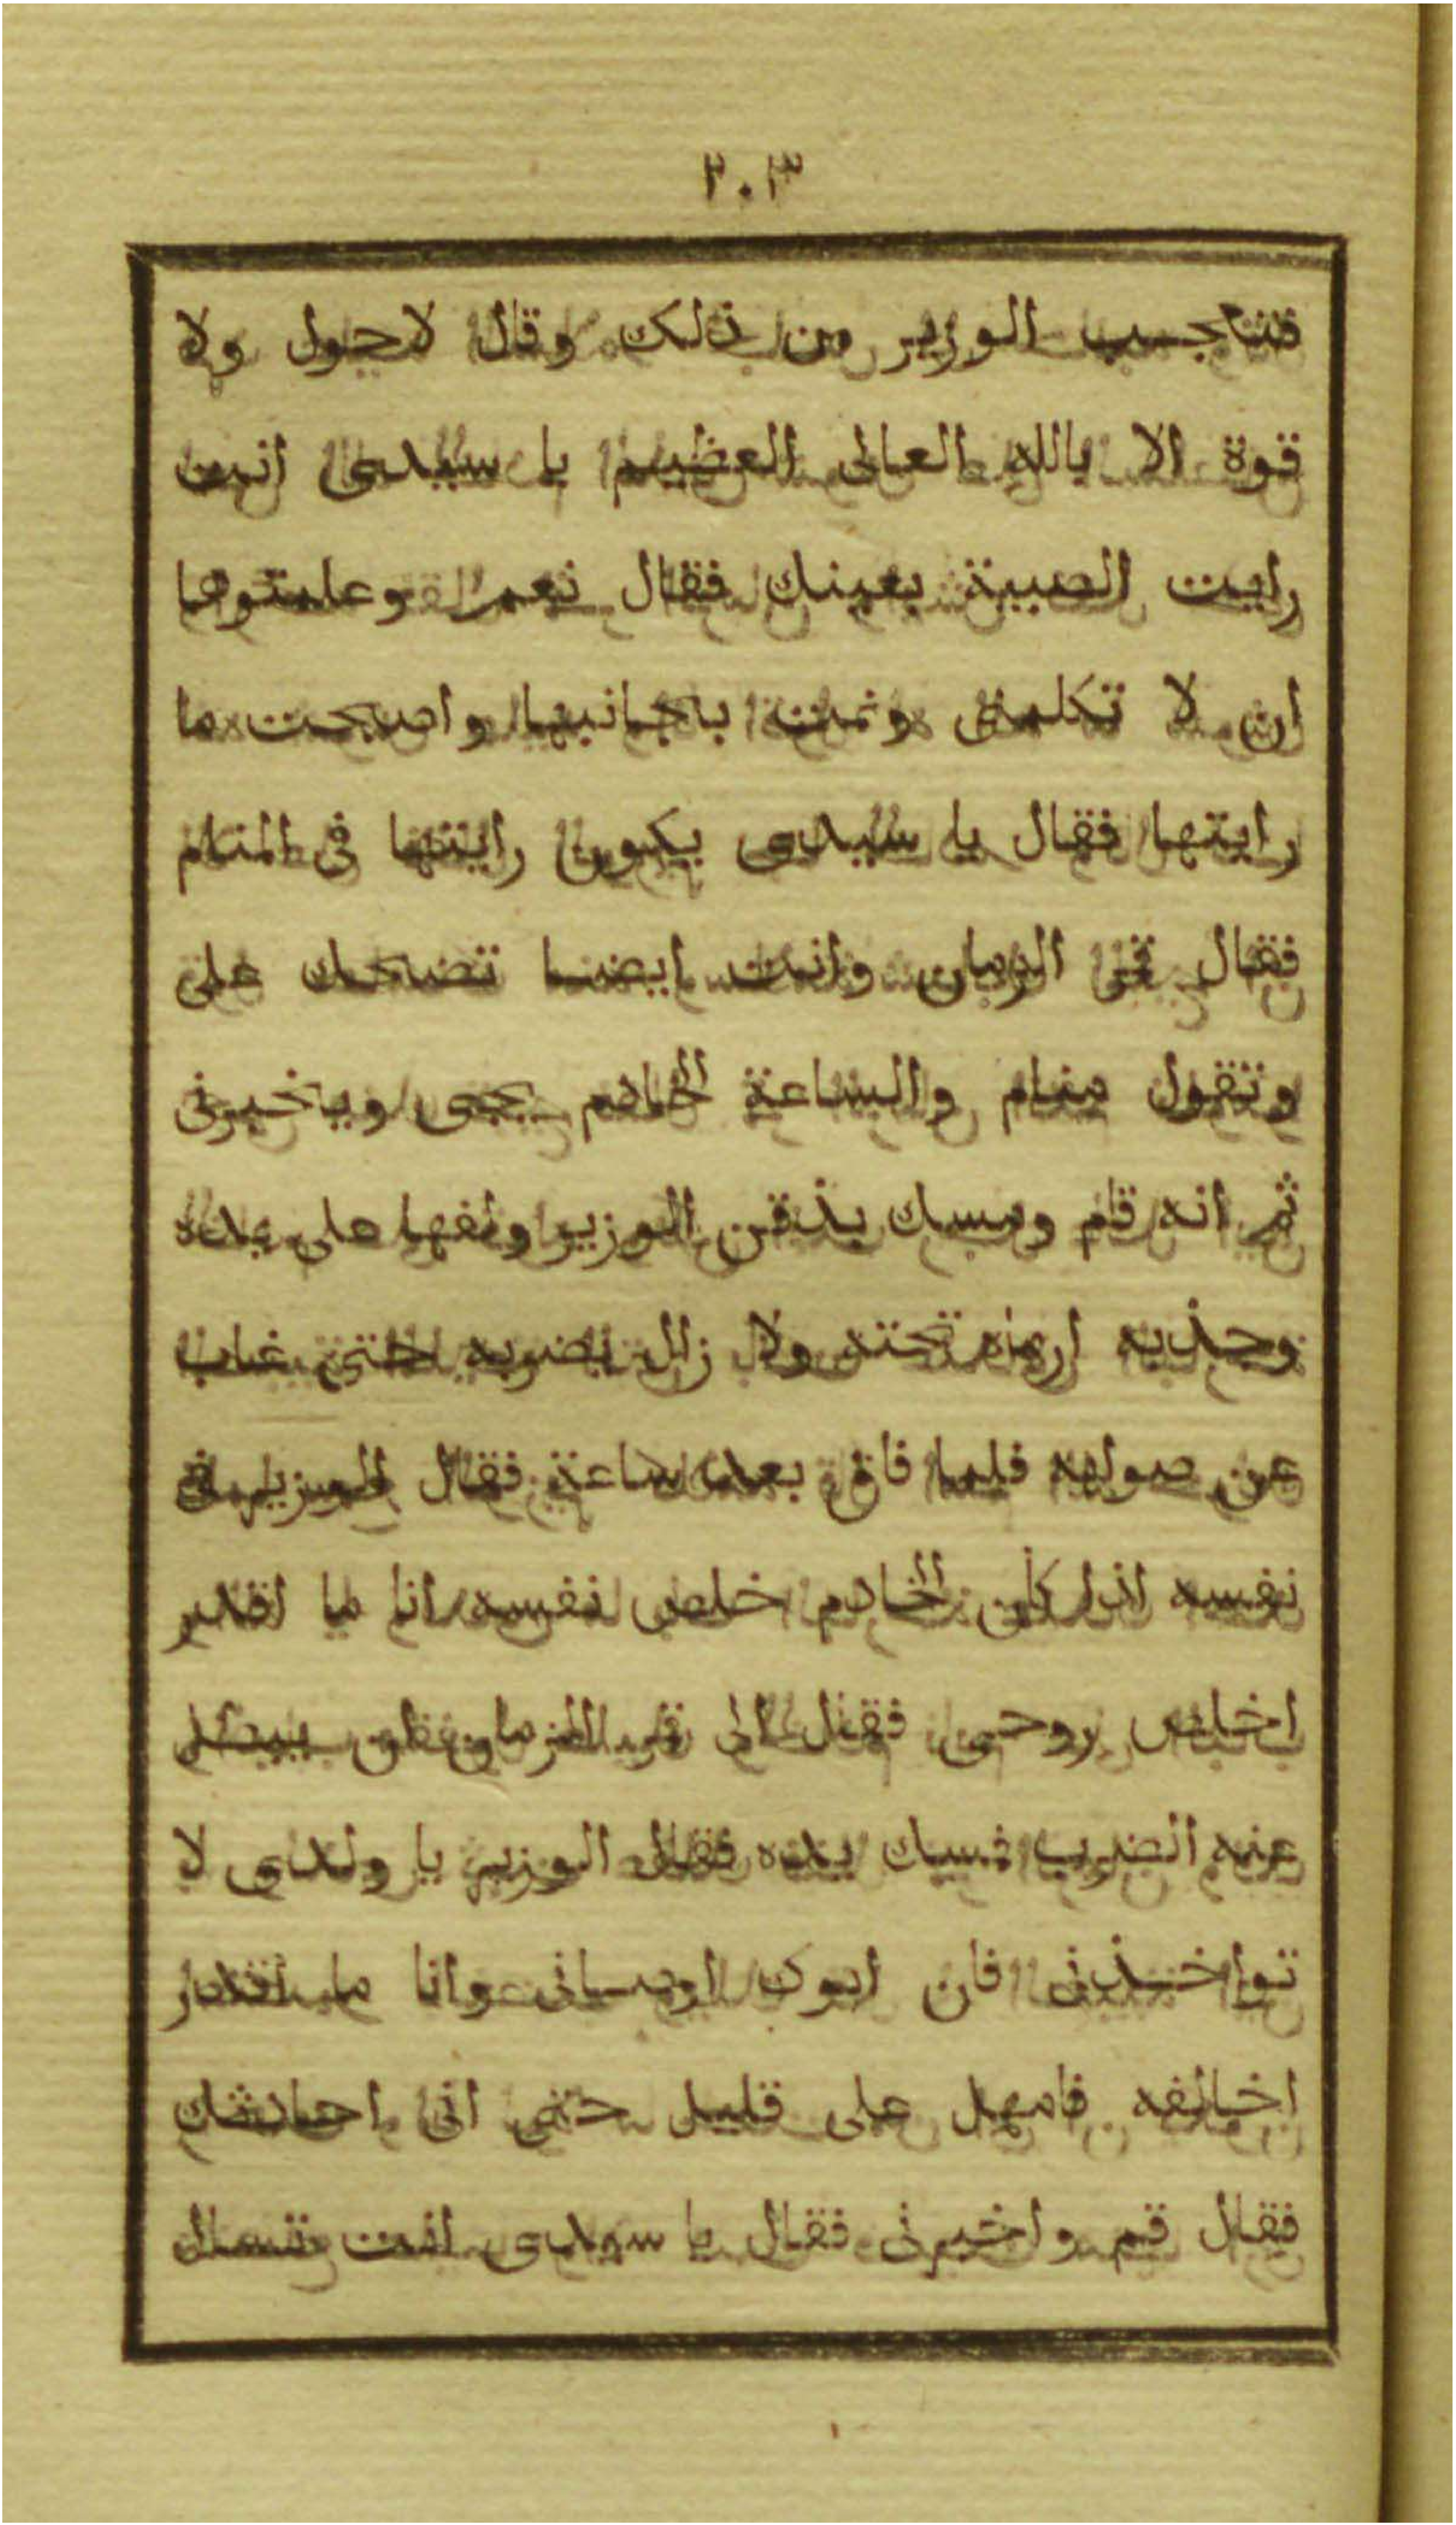 ٢٠٣
فتتعجب الوزير من ذلك وقال لا حول ولا
قوة الا بالله العالى العظيم يا سيدى انت
رايت الصبية بعينك فقال نعم وعلمتوها
ان لا تكلمنى ونمت بجانبها واصبحت ما
رايتها فقال يا سيدى يكون رايتها فى المنام
فقال قمر الزمان وانت ايضا تضحك على
وتقول منام والساعة الخادم يجى ويخبرنى
ثم انه قام ومسك بذقن الوزير ولفها على يده
وجذبه ارماه تحته ولا زال يضربه حتى غاب
عن صوابه فلما فاق بعد ساعة فقال الوزير فى
نفسه اذا كان الخادم خلص نفسه انا ما اقدر
اخلص روحى فقال الى قمر الزمان يبطل
عنه الضرب فمسك يده فقال الوزير يا ولدى لا
تواخذنى فان ابوك اوصانى وانا ما اقدر
اخالفه فامهل على قليل حتى انى احادثك
فقال قم واخبرنى فقال يا سيدى انت تسال